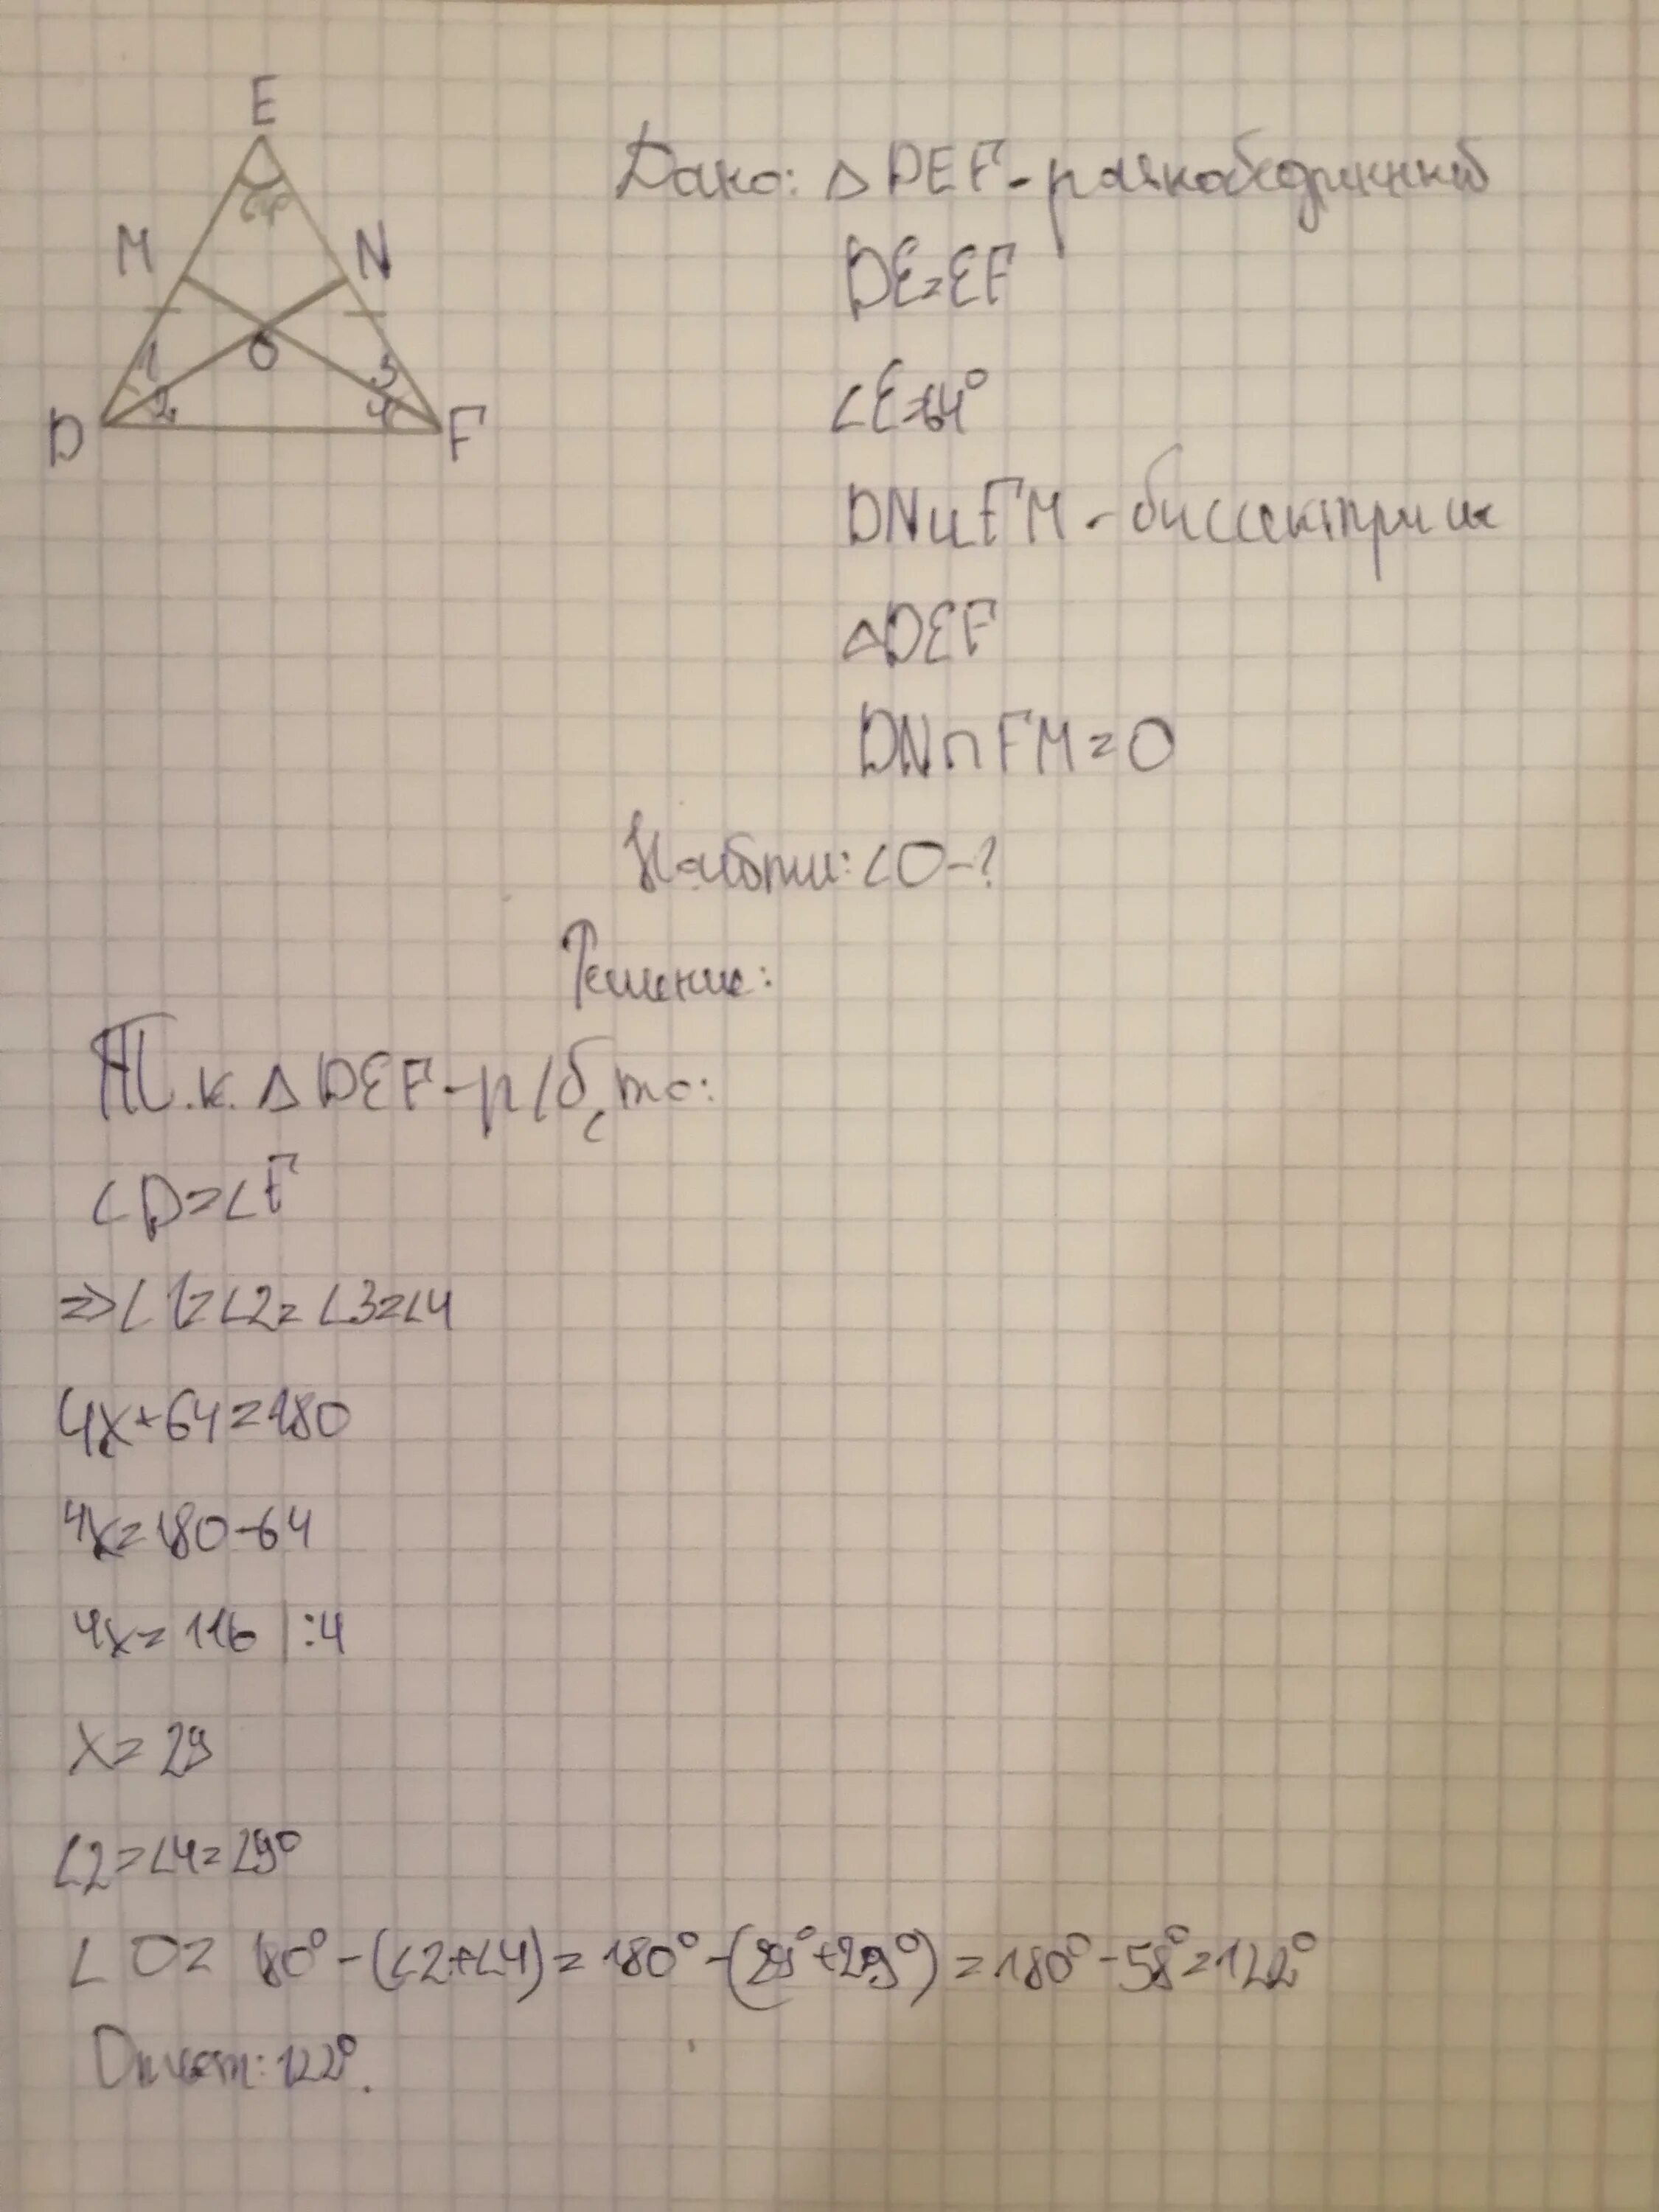 E
64°
M
N
O
1
3
2
4
D
F
Дано: △DEF - равнобедренный
DE=EF
∠E=64°
DN и FM - биссектрисы
△DEF
DN∩FM=O
Найти: ∠O-?
Решение:
Т.к. △DEF-р/б, то:
∠D=∠F
⇒∠1=∠2=∠3=∠4
4x+64=180
4x=180-64
4x=116 |:4
x=29
∠2=∠4=29°
∠O=180°-(∠2+∠4)=180°-(29°+29°)=180°-58°=122°
Ответ: 122°.